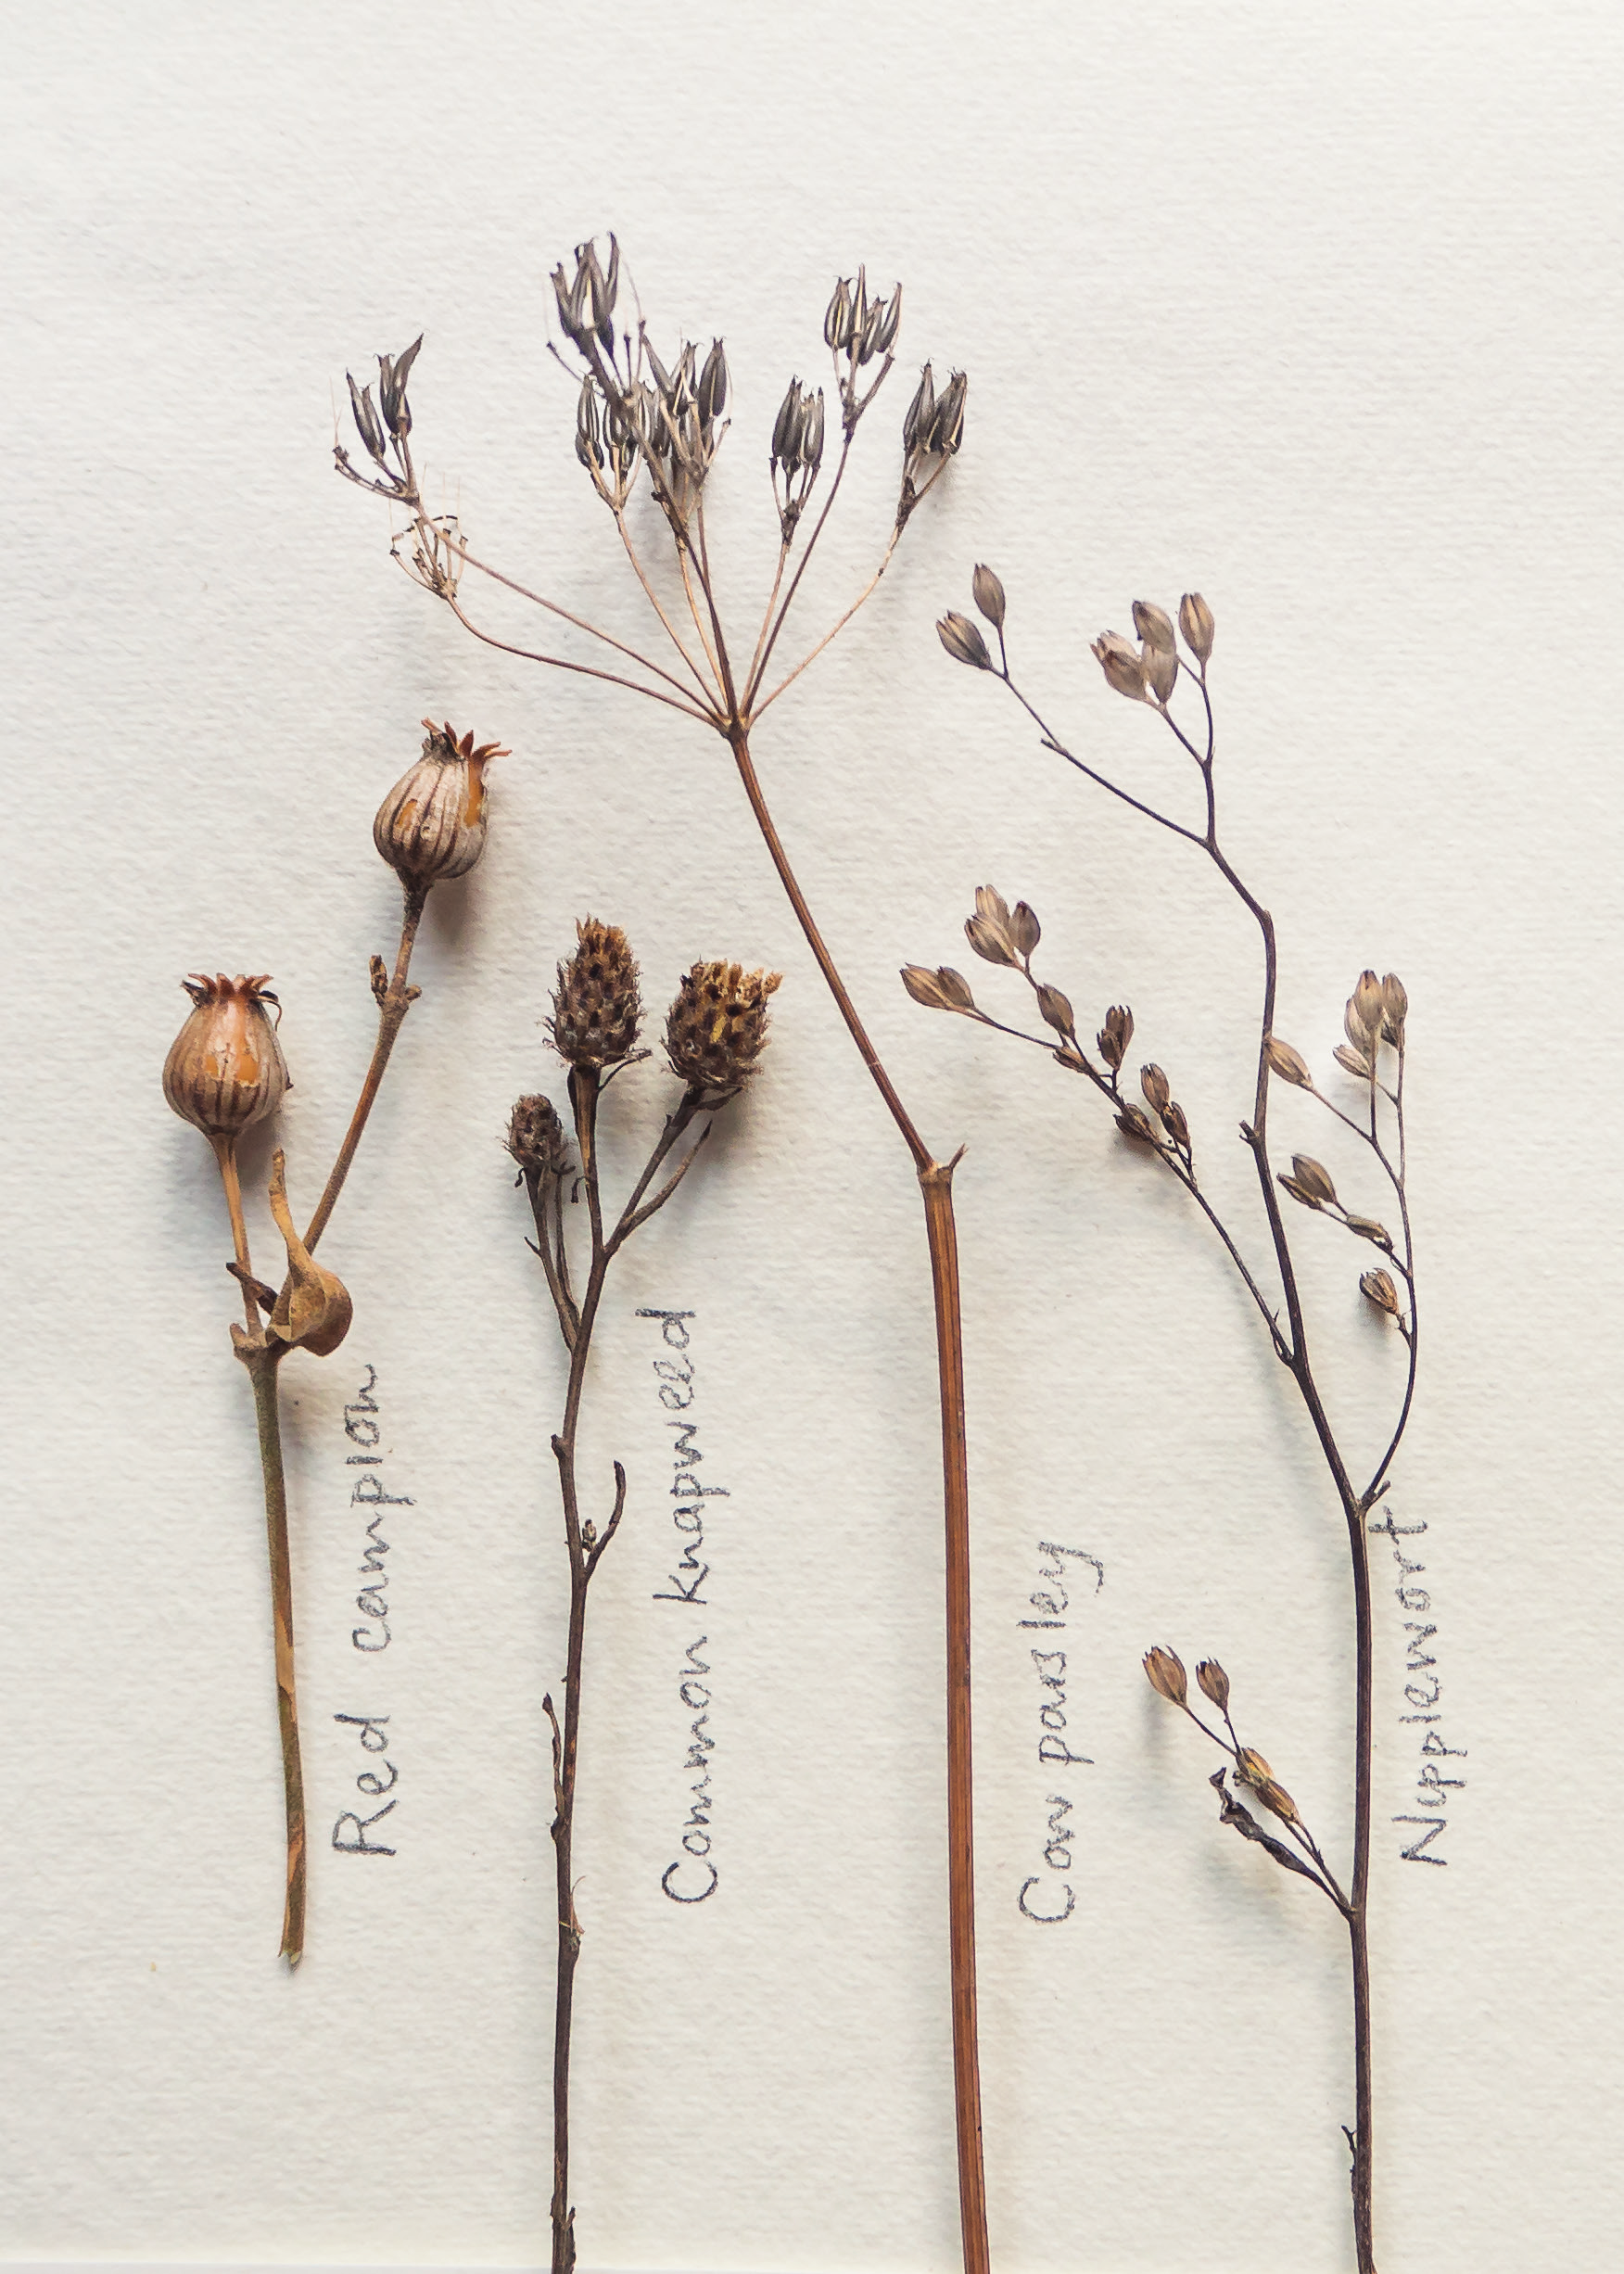 Red campion
Common knapweed
Cow parsley
Nipplewort